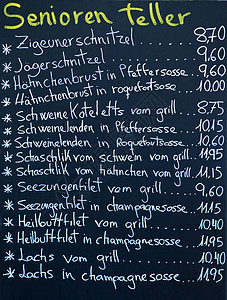 Senioren teller
* Zigeunerschnitzel ........ 8,70
* Jägerschnitzel .......... 9,60
* Hähnchenbrust in Pfeffersosse .. 9,60
* Hähnchenbrust in roquefotsosse. 10.00
* Schweine Koteletts vom grill... 8,75
* Schweinelenden in Pfeffersosse... 10,15
* Schweinelenden in Roquefoutsosse.. 10,60
* Schaschlik vom schwein vom grill.. 11,95
* Schaschlik vom hähnchen vom grill.. 11,15
* Seezungenfilet vom grill .... 9,60
* Seezungenfilet in champagnesosse... 11,15
* Heilbuttfilet vom grill ..... 10,40
* Heilbuttfilet in champagnesosse... 11,95
* Lachs vom grill ....... 10,40
* Lachs in champagnesosse .... 11.95